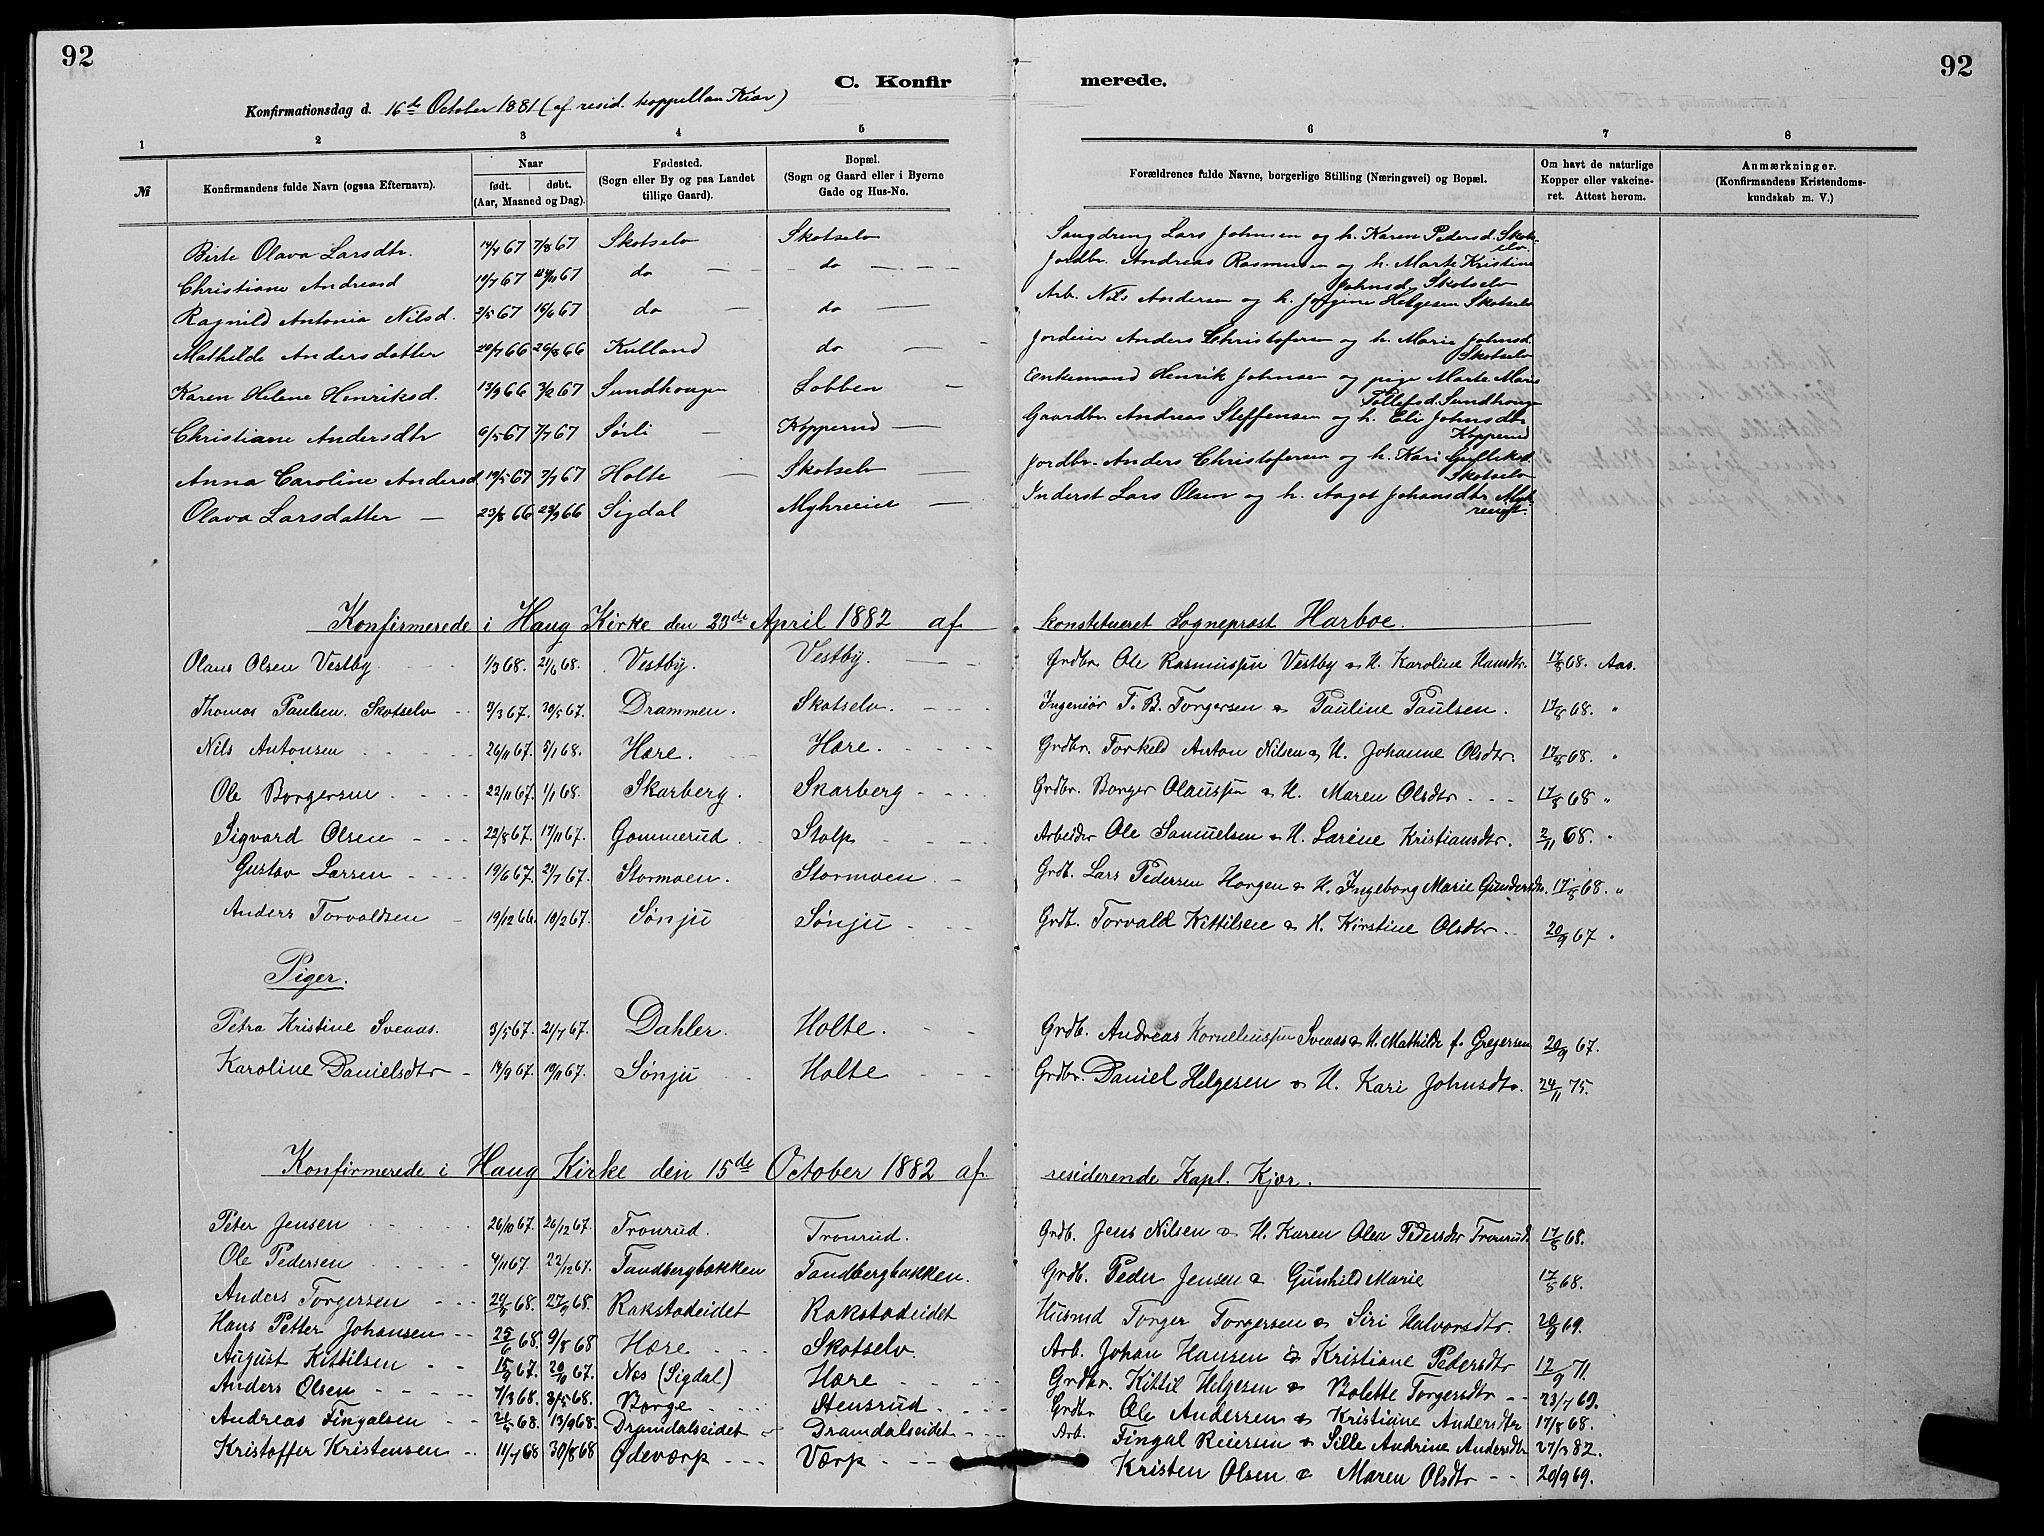 92
92
C. Konfir merede.
Konfirmationsdag d. 16de October 1881 (af resid. kappellan Kiær)
1 2 3 4 5 6 7 8
№ Konfirmandens fulde Navn (ogsaa Efternavn). Naar født. døbt. (Aar, Maaned og Dag). Fødested. (Sogn eller By og paa Landet tillige Gaard). Bopæl. (Sogn og Gaard eller i Byerne Gade og Hus-No. Forældrenes fulde Navne, borgerlige Stilling (Næringsvei) og Bopæl. Om havt de naturlige Kopper eller vakcineret. Attest herom. Anmærkninger. (Konfirmandens Kristendomskundskab m. V.)
Birte Olava Larsdtr. 14/4 67 7/8 67 Skotselv Skotselv Saugdreng Lars Johnsen og h. Karen Pedersd. Skotselv
Christiane Andreasd 19/7 67 24/11 67 do do Jordbr. Andreas Rasmussen og h. Marte Kristine Johnsd. Skotselv
Ragnild Antonia Nilsd. 2/5 67 16/6 67 do do Arb. Nils Andersen og h. Jørgine Helgesen Skotselv
Mathilde Andersdatter 20/7 66 26/8 66 Kulland do Jordeier Anders Christofersen og h. Marie Johnsd. Skotselv
Karen Helene Henriksd. 13/9 66 3/2 67 Sundhougen Lobben Enkemand Henrik Johnsen og pige Marte Marie Tollefsd. Sundhougen
Christiane Andersdtr 6/5 67 7/7 67 Sørli Kopperud Gaardbr. Andreas Steffensen og h. Eli Johnsdtr Kopperud
Anna Caroline Andersd. 19/5 67 7/7 67 Holte Skotselv Jordbr. Anders Christofersen og h. Kari Gulliksd. Skotselv
Olava Larsdatter 23/8 66 23/9 66 Sigdal Myhreeiet Inderst Lars Olsen og h. Aagot Johansdtr
Konfirmerede i Haug Kirke den 23de April 1882 af konstitueret Sogneprest Harboe.
Olaus Olsen Vestby 1/3 68. 21/6 68. Vestby. Vestby. Grdbr. Ole Rasmussen Vestby & H. Karoline Hansdtr. 17/8 68. Aas.
Thomas Paulsen Skotselv 3/3 67. 30/5 67. Drammen. Skotselv. Ingeniør T. B. Torgersen & Pauline Paulsen. 17/8 68. "
Nils Antonsen 26/11 67. 5/1 68. Hære. Hære. Grdbr. Torkeld Anton Nilsen & H. Johanne Olsdtr. 17/8 68. "
Ole Borgersen 22/11 67. 1/1 68. Skarberg. Skarberg Grdbr. Borger Olaussen & H. Maren Olsdtr 17/8 68 "
Sigvard Olsen 22/8 67. 17/11 67. Gommerud. Stolp Arbeider Ole Samuelsen & H. Larine Kristiansdtr. 2/11 68. "
Gustav Larsen 19/6 67. 21/7 67. Stormoen. Stormoen Grdb. Lars Pedersen Horgen & H. Ingeborg Marie Gundersdtr. 17/8 68. "
Anders Torvaldsen 19/12 66. 10/2 67. Sønju Sønju Grdb. Torvald Kittilsen & H. Kirstine Olsdtr 20/9 67 "
Piger.
Petra Kristine Sveaas. 3/5 67. 21/7 67. Dahler. Holte. Grdb. Andreas Korneliussen Sveaas & H. Mathilde f. Gregersen 20/9 67.
Karoline Danielsdtr 14/9 67. 10/11 67. Sønju Holte Grdbr. Daniel Helgesen & H. Kari Johnsdtr. 24/11 75.
Konfirmerede i Haug Kirke den 15de October 1882 af residerende Kapl. Kjær.
Peter Jensen 26/10 67. 26/12 67. Tronrud. Tronrud. Grdb. Jens Nilsen & H. Karen Olea Pedersdtr Tronrud. 17/8 68.
Ole Pedersen 4/11 67. 22/12 67. Tandbergbakken Tandbergbakken. Grdb. Peder Jensen & Gunhild Marie 17/8 68.
Anders Torgersen 24/5 68. 27/9 68. Rakstadeidet Rakstadeidet Husmd Torger Torgersen & Siri Halvorsdtr. 20/9 69.
Hans Petter Johansen 25/6 68. 9/8 68 Hære Skotselv. Arb. Johan Hansen & Kristiane Pedersdtr 12/9 71.
August Kittilsen 15/9 67. 20/11 67. Næs (Sigdal) Hære Grdbr. Kittil Helgesen & Bolette Torgersdtr 23/7 69.
Anders Olsen 7/3 68. 3/5 68. Borge Stensrud Grdbr Ole Andersen & Kristiane Andersdtr 17/8 68.
Andreas Fingalsen 21/4 68. 13/9 68. Dramdalseidet Dramdalseidet Arb. Fingal Reiersen & Sille Andrine Andersdtr 27/3 82.
Kristoffer Kristensen 11/7 68 30/8 68 Ødeværp Værp Kristen Olsen & Maren Olsdtr 20/9 69.